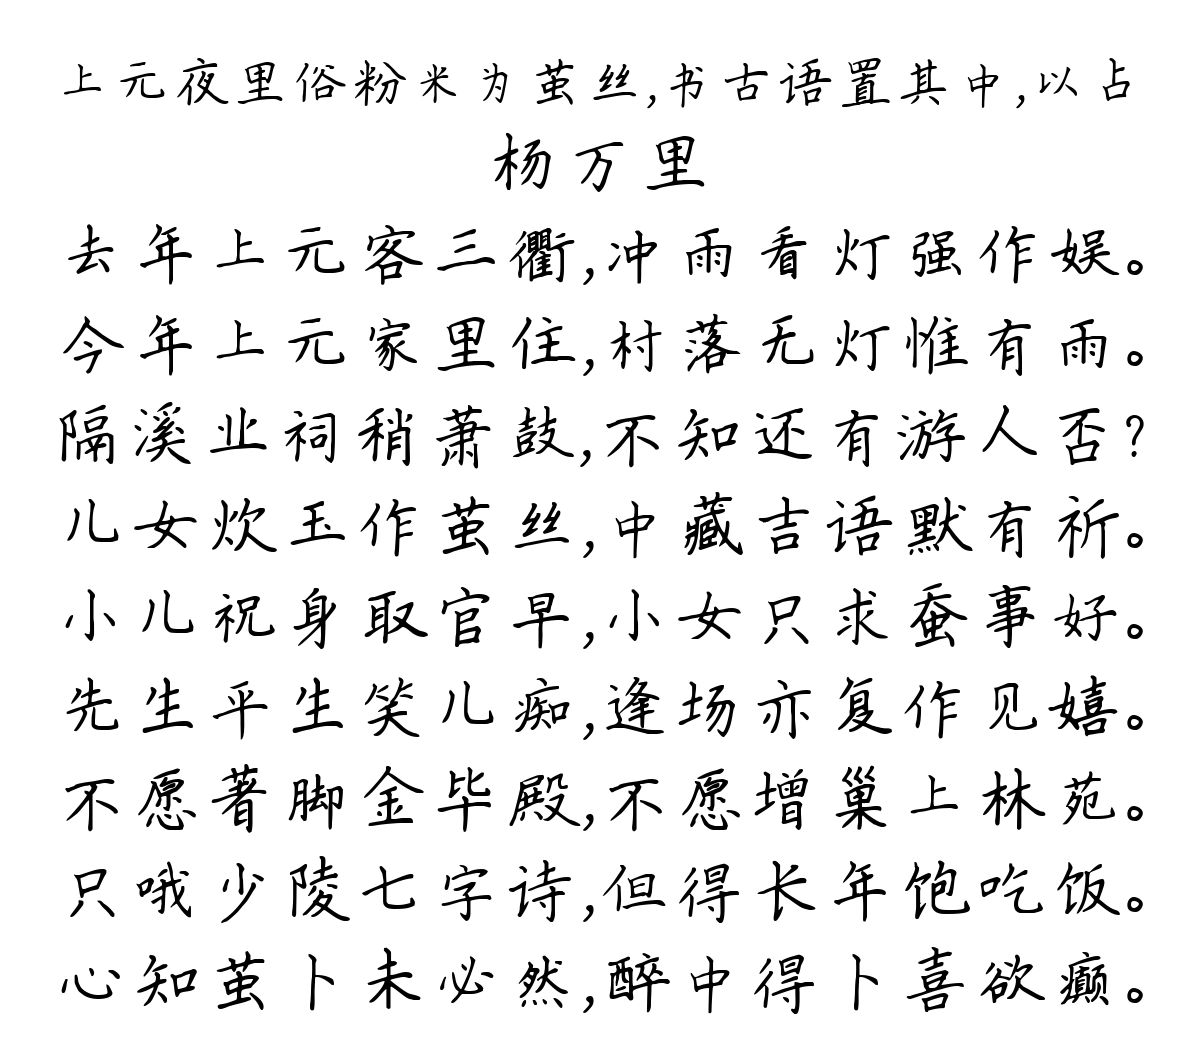 上元夜里俗粉米为茧丝,书古语置其中,以占
杨万里
去年上元客三衢,冲雨看灯强作娱。
今年上元家里住,村落无灯惟有雨。
隔溪业祠稍萧鼓,不知还有游人否?
儿女炊玉作茧丝,中藏吉语默有祈。
小儿祝身取官早,小女只求蚕事好。
先生平生笑儿痴,逢场亦复作见嬉。
不愿著脚金毕殿,不愿增巢上林苑。
只哦少陵七字诗,但得长年饱吃饭。
心知茧卜未必然,醉中得卜喜欲癫。